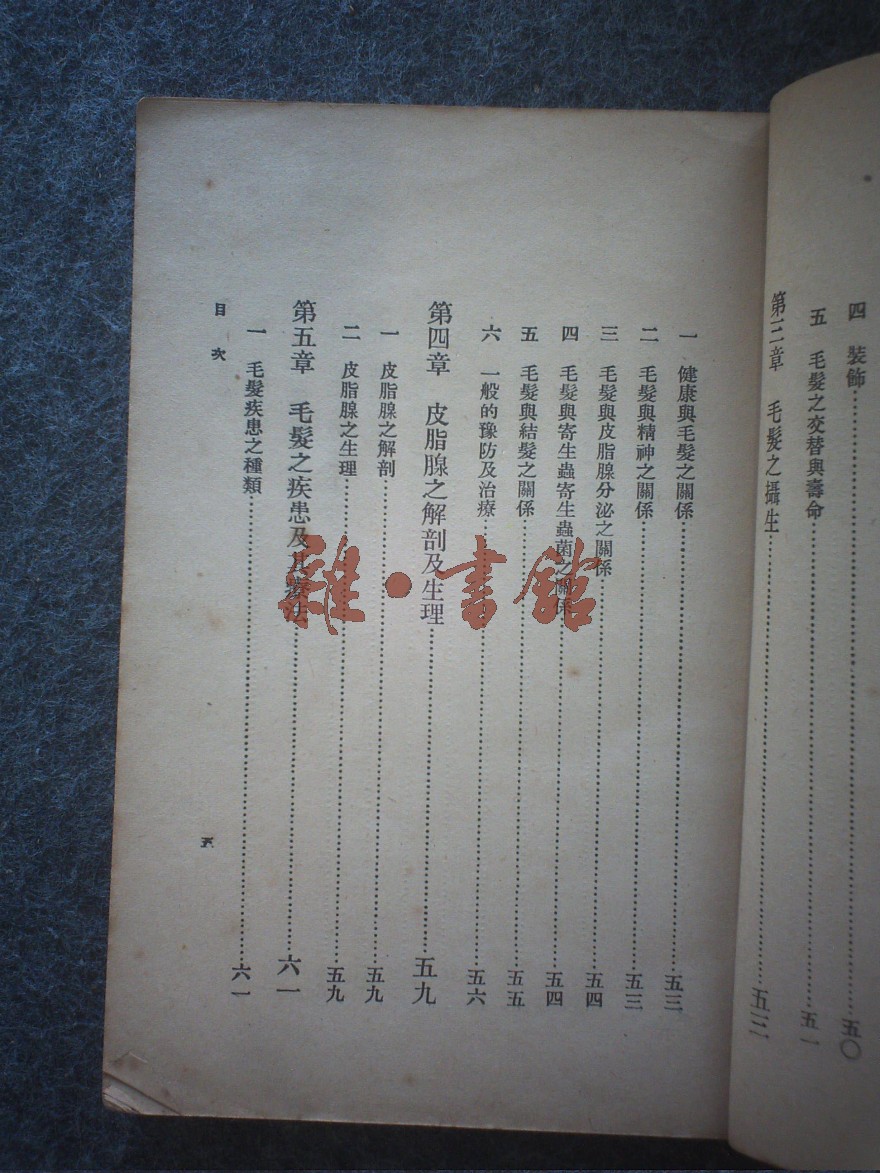 四　裝飾……五〇
五　毛髮之交替與壽命……五一
第三章　毛髮之攝生……五三
一　健康與毛髮之關係……五三
二　毛髮與精神之關係……五三
三　毛髮與皮脂腺分泌之關係……五四
四　毛髮與寄生蟲寄生蟲菌之關係……五四
五　毛髮與結髮之關係……五五
六　一般的豫防及治療……五六
第四章　皮脂腺之解剖及生理……五九
一　皮脂腺之解剖……五九
二　皮脂腺之生理……五九
第五章　毛髮之疾患及其療法……六一
一　毛髮疾患之種類……六一
目次
五
雜·書館